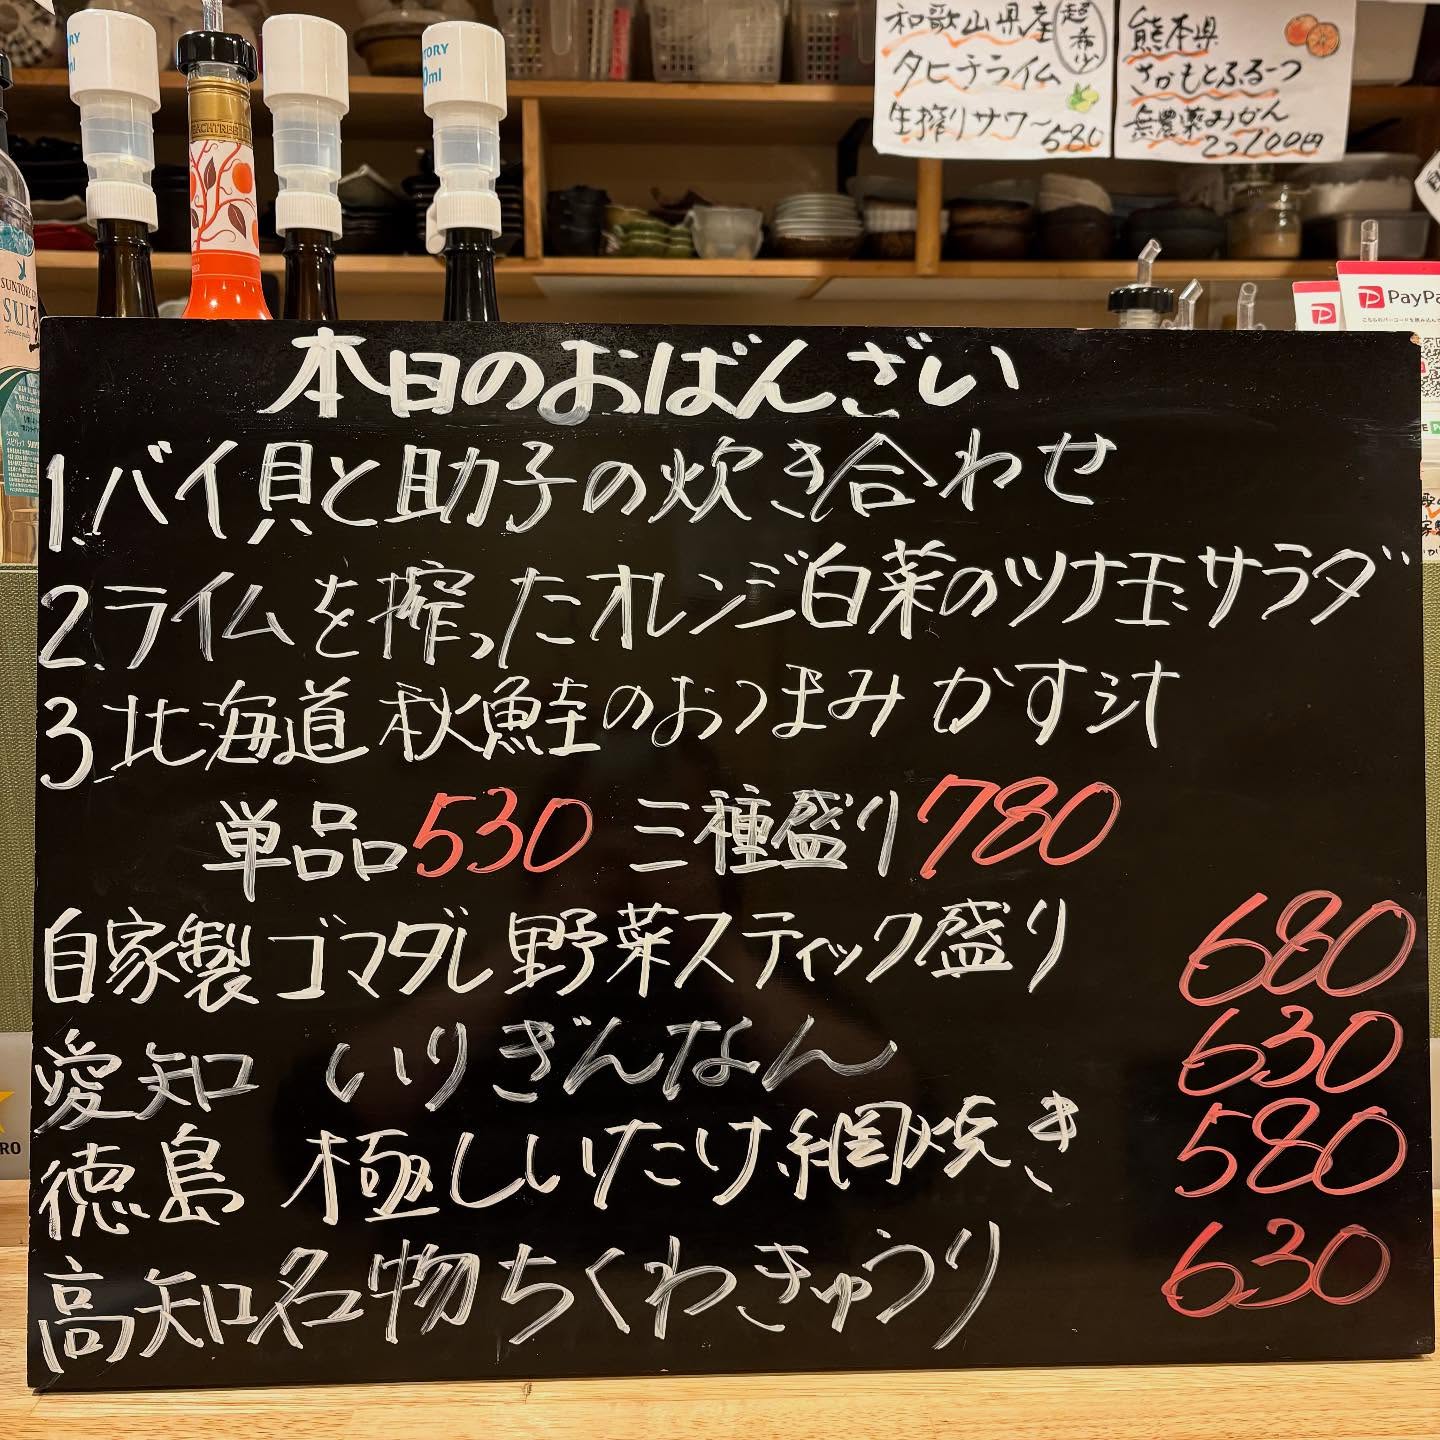 和歌山県産
超希少
タヒチライム
生搾りサワー580
熊本県
さかもとふるーつ
無農薬みかん
PayPa
SUNTORY
SUI
本日のおばんざい
1.バイ貝と助子の炊き合わせ
2.ライムを搾ったオレンジ白菜のツナ玉サラダ
3.北海道秋鮭のおつまみかす汁
単品530 三種盛り780
自家製ゴマダレ野菜スティック盛り 680
愛知 いりぎんなん 630
徳島 極しいたけ網焼き 580
高知名物ちくわきゅうり 630